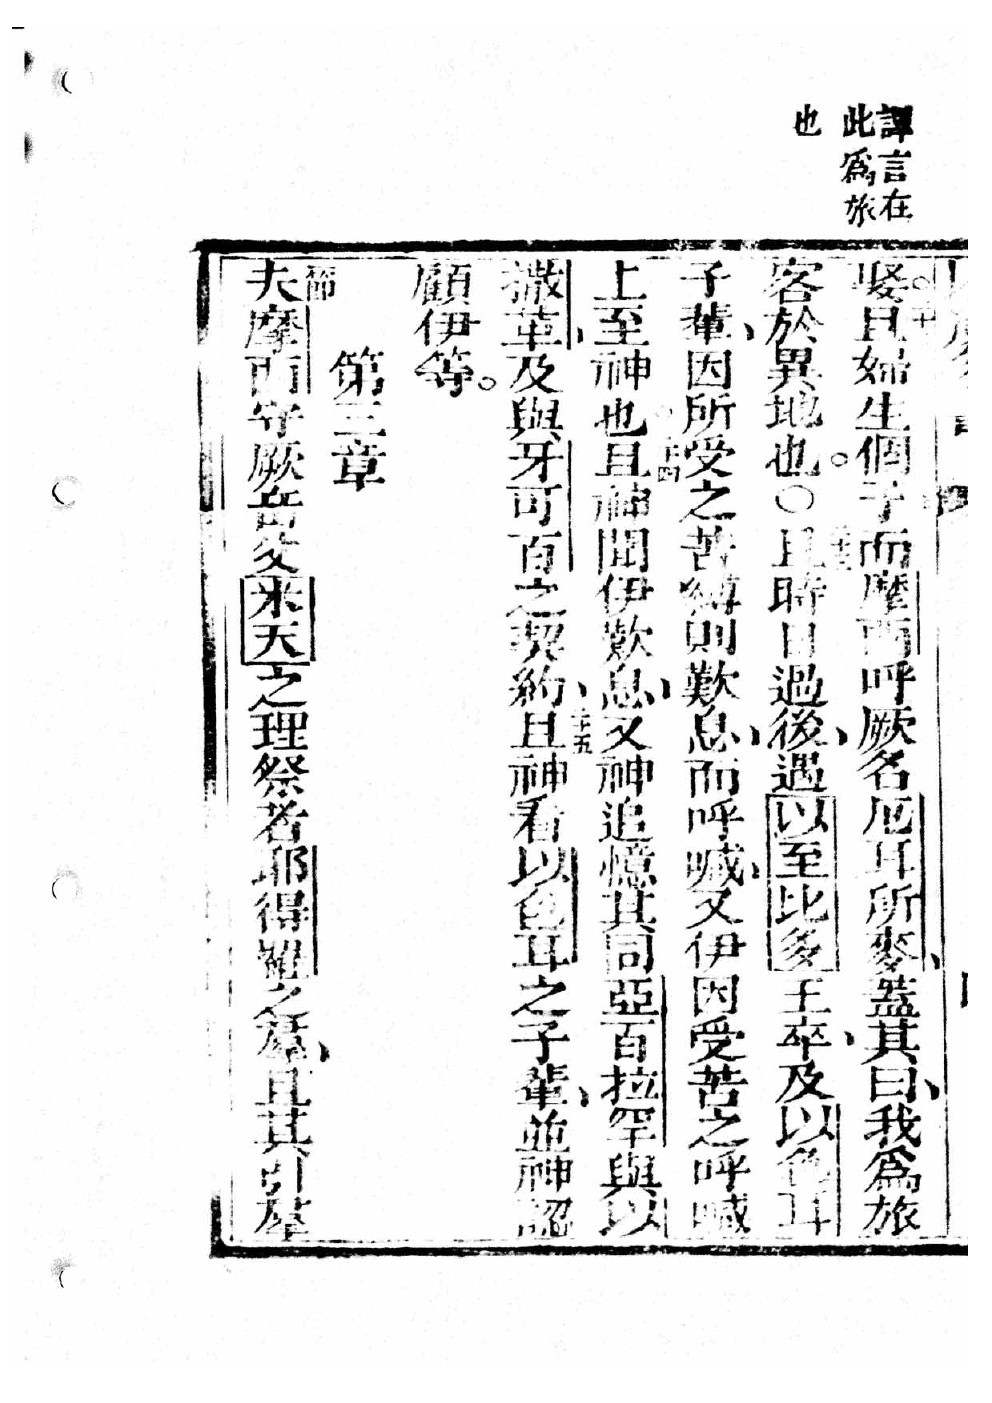 譯言在
此為旅
也
娶且婦生個子而摩西呼厥名厄耳所麥、蓋其曰、我為旅
客於異地也。○且時日過後、遇以至比多王卒、及以色耳
子輩、因所受之苦縛則歎息、而呼喊、又伊因受苦之呼喊
上至神也且神聞伊歎息、又神追憶其同亞百拉罕與以
撒革、及與牙可百之契約、且神看以色耳之子輩、並神認
二十五
顧伊等。
第三章
節
夫摩西守厥岳父米天之理祭者耶得羅之羣、且其引羣